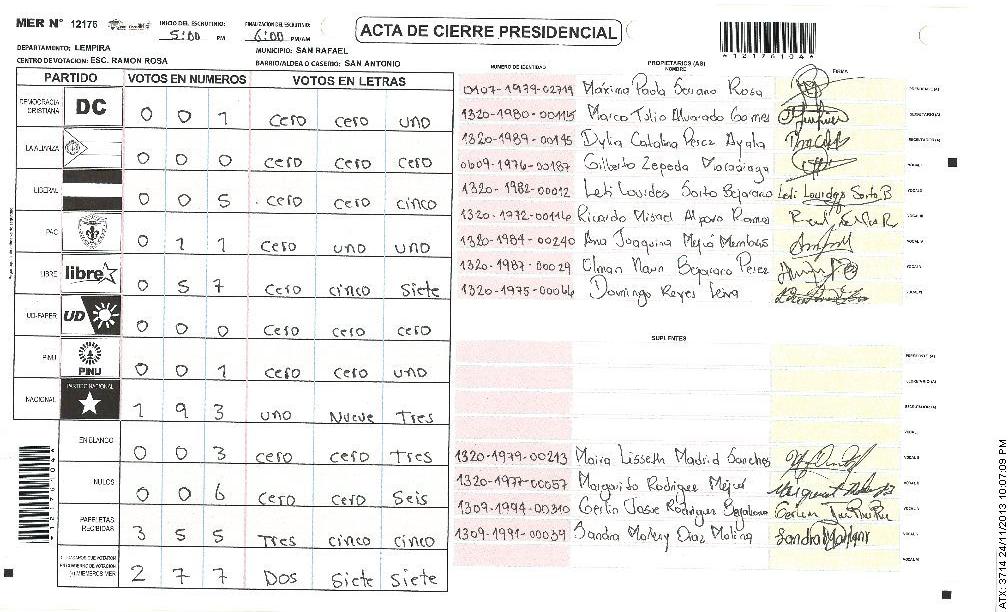 MER N° 12176
INICIO DEL ESCRUTINIO: 5:00 PM
FINALIZACION DEL ESCRUTINIO: 6:00 PM/AM
ACTA DE CIERRE PRESIDENCIAL
*12176104*
DEPARTAMENTO: LEMPIRA
MUNICIPIO: SAN RAFAEL
CENTRO DE VOTACION: ESC. RAMON ROSA
BARRIO/ALDEA O CASERIO: SAN ANTONIO
PARTIDO VOTOS EN NUMEROS VOTOS EN LETRAS
DEMOCRACIA CRISTIANA DC 0 0 1 cero cero uno
LA ALIANZA 0 0 0 cero cero cero
LIBERAL 0 0 5 cero cero cinco
PAC 0 1 1 cero uno uno
LIBRE libre 0 5 7 cero cinco siete
UD-FAPER UD 0 0 0 cero cero cero
PINU PINU 0 0 1 cero cero uno
NACIONAL PARTIDO NACIONAL 1 9 3 uno Nueve Tres
EN BLANCO 0 0 3 cero cero Tres
NULOS 0 0 6 cero cero Seis
PAPELETAS RECIBIDAS 3 5 5 Tres cinco cinco
CIUDADANOS QUE VOTARON EN CUADERNO DE VOTACION (+) MIEMBROS MER 2 7 7 Dos Siete Siete
NUMERO DE IDENTIDAD PROPIETARIOS (AS) NOMBRE FIRMA
0107-1979-02719 Máxima Paola Serrano Rosa PRESIDENTE (A)
1320-1980-00115 Marco Tulio Alvarado Gomes SECRETARIO (A)
1320-1989-00195 Dylia Catalina Perez Ayala
0609-1976-00187 Gilberto Zepeda
1320-1982-00012 Leti Lourdes Sorto Bejarano Leti Lourdes Sorto B
1320-1972-00116 Ricardo Misael Alparo Ramos
1320-1984-00240 Ana Joaquina Mejía
1320-1987-00029 Olman Bejarano Perez
1320-1975-00066 Domingo Reyes Leiva
SUPLENTES
1320-1979-00213 Maira Lisseth Madrid Sanches
1320-1977-00057 Margarito Rodrigue
1309-1994-00310 Josue Rodriguez
1309-1991-00039 Sandra Diaz Molina
ATX: 3714 24/11/2013 10:07:09 PM